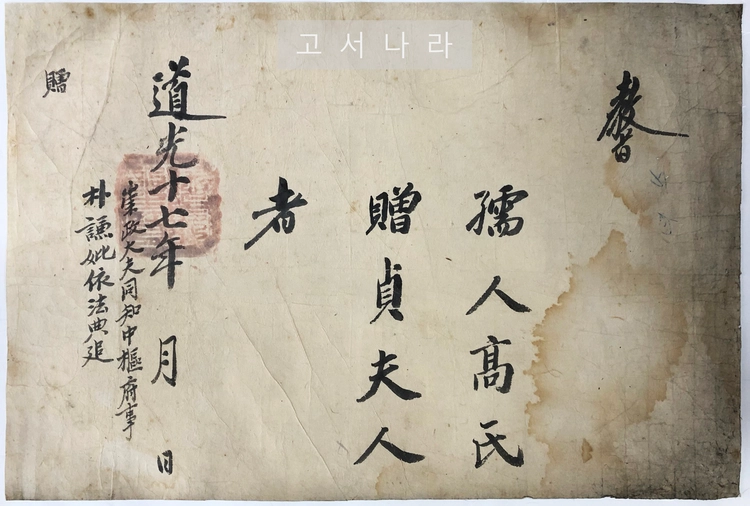 고서나라
敎旨
孺人高氏
贈貞夫人
者
道光十七年 月 日
崇政大夫同知中樞府事
朴謙妣依法典追
贈